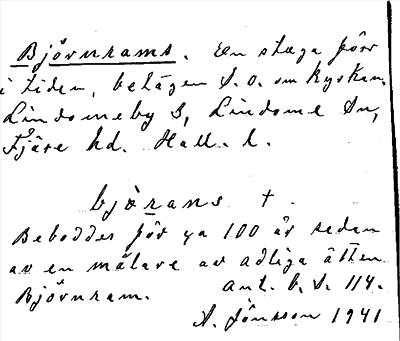 Björnrams. En stuga förr
i tiden, belägen S.o. om kyrkan.
Lindomeby S, Lindome Sn,
Fjäre hd. Hall. l.
bjòrans +
Beboddes för ca 100 år sedan
av en målare av adliga ätten
Björnram. Ant. b. S. 114.
A. Jönsson 1941